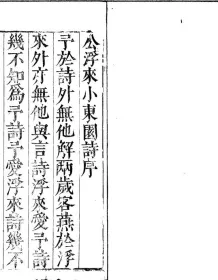 公浮來小東園詩序
予於詩外無他解兩歲客燕於浮
來外亦無他與言詩浮來愛予詩
幾不知爲予詩予愛浮來詩幾不